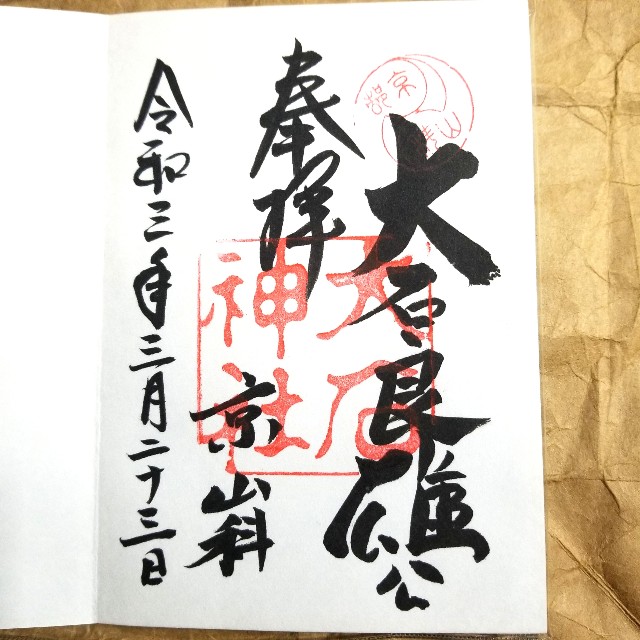 大石良雄公
奉拝
京山科
大石
神社
令和三年三月二十三日